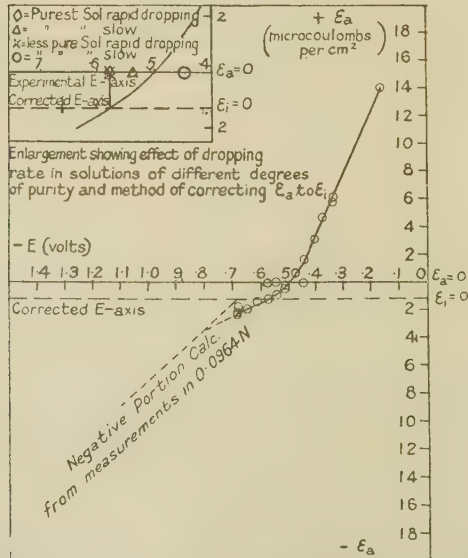 ◊=Purest Sol rapid dropping
△= " " slow
×=less pure Sol rapid dropping
○= " " " slow
7 6 5 4
2
Experimental E-axis
εa=0
Corrected E-axis
εi=0
2
Enlargement showing effect of dropping
rate in solutions of different degrees
of purity and method of correcting εa to εi
+ εa
(microcoulombs
per cm²)
18
16
14
12
10
8
6
4
2
- E (volts)
1·4 1·3 1·2 1·1 1·0 ·9 ·8 ·7 ·6 ·5 ·4 ·3 ·2 ·1 0
εa=0
Corrected E-axis
εi=0
2
4
6
8
10
12
14
16
18
Negative Portion Calc.
from measurements in 0.0964N
- εa